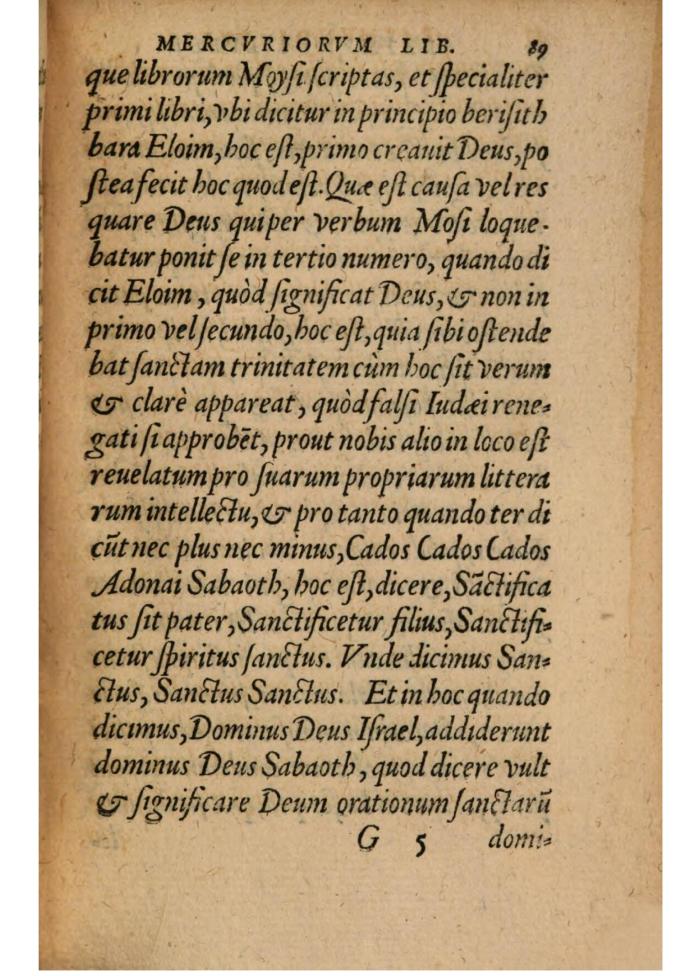 MERCVRIORVM LIB. 89
que librorum Moysi scriptas, et specialiter
primi libri, vbi dicitur in principio berisith
bara Eloim, hoc est, primo creauit Deus, po
stea fecit hoc quod est. Quæ est causa vel res
quare Deus qui per verbum Mosi loque-
batur ponit se in tertio numero, quando di
cit Eloim, quòd significat Deus, & non in
primo vel secundo, hoc est, quia sibi ostende
bat sanctam trinitatem cùm hoc sit verum
& clarè appareat, quòd falsi Iudæi rene-
gati si approbẽt, prout nobis alio in loco est
reuelatum pro suarum propriarum littera
rum intellectu, & pro tanto quando ter di
cũt nec plus nec minus, Cados Cados Cados
Adonai Sabaoth, hoc est, dicere, Sãctifica
tus sit pater, Sanctificetur filius, Sanctifi-
cetur spiritus sanctus. Vnde dicimus San-
ctus, Sanctus Sanctus. Et in hoc quando
dicimus, Dominus Deus Israel, addiderunt
dominus Deus Sabaoth, quod dicere vult
& significare Deum orationum sanctarũ
G 5 domi-